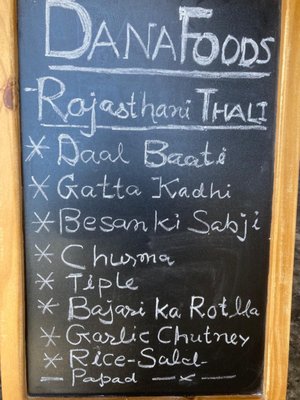 DANAFOODS
-Rajasthani THALI
* Daal Baati
* Gatta Kadhi
* Besan ki Sabji
* Churma
* Tiple
* Bajari ka Rotlla
* Garlic Chutney
* Rice-Salad
- Papad - x -